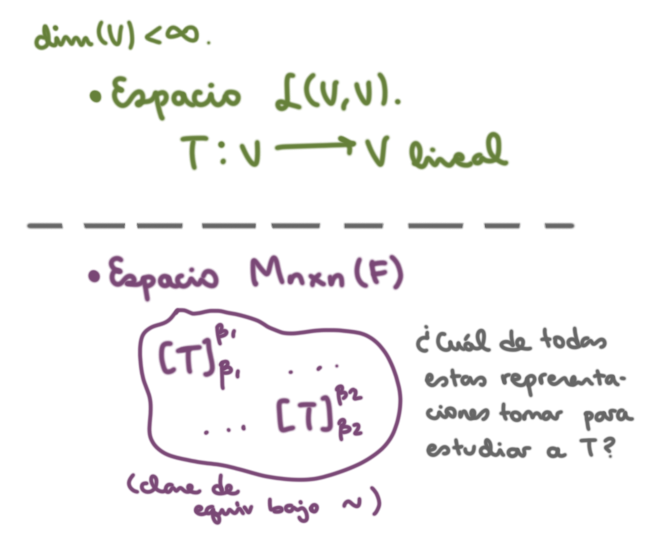 dim(V) < ∞.
• Espacio ℒ(V,V).
T: V ⟶ V lineal
• Espacio Mnxn(F)
[T]_{β1}^{β1} ...
... [T]_{β2}^{β2}
(clase de
equiv bajo ~)
¿Cuál de todas
estas representa-
ciones tomar para
estudiar a T?